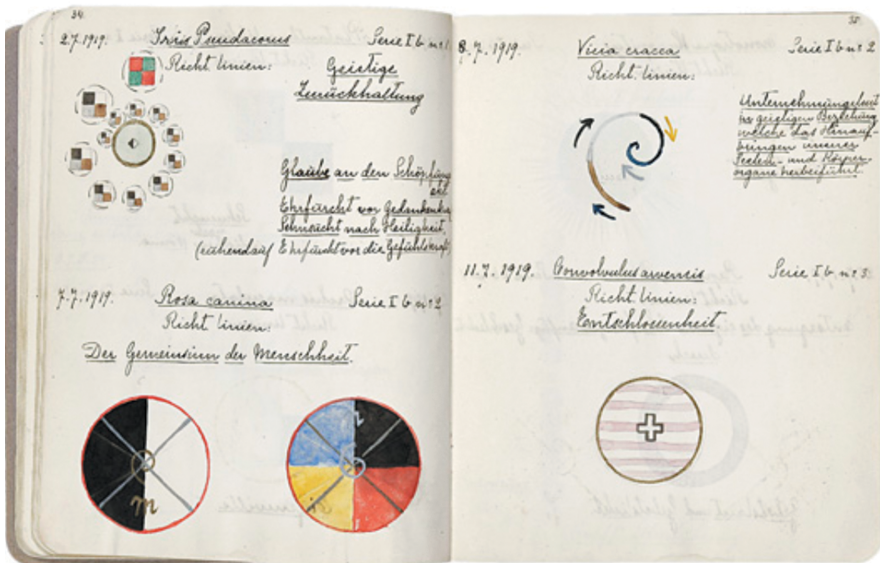 34.
2.7.1919. Iris Pseudacorus Serie I b. nr 1.
Richt linien:
Geistige
Zurückhaltung
Glaube an den Schöpfung
Ehrfurcht vor
Sehnsucht nach Heiligkeit,
(ruhend auf Ehrfurcht vor die Gefühlskraft)
7.7.1919. Rosa canina Serie I b. nr 2
Richt linien:
Der Gemeinsinn der Menschheit.
m
8.7.1919. Vicia cracca Serie I b nr 2
Richt. linien:
Unternehmungslust
in geistigen Beziehung
welche das Hinauf-
bringen unserer
Seelen- und Körper-
organe herbeiführt.
11.7.1919. Convolvulus arvensis Serie I b. nr 3.
Richt linien:
Entschlossenheit